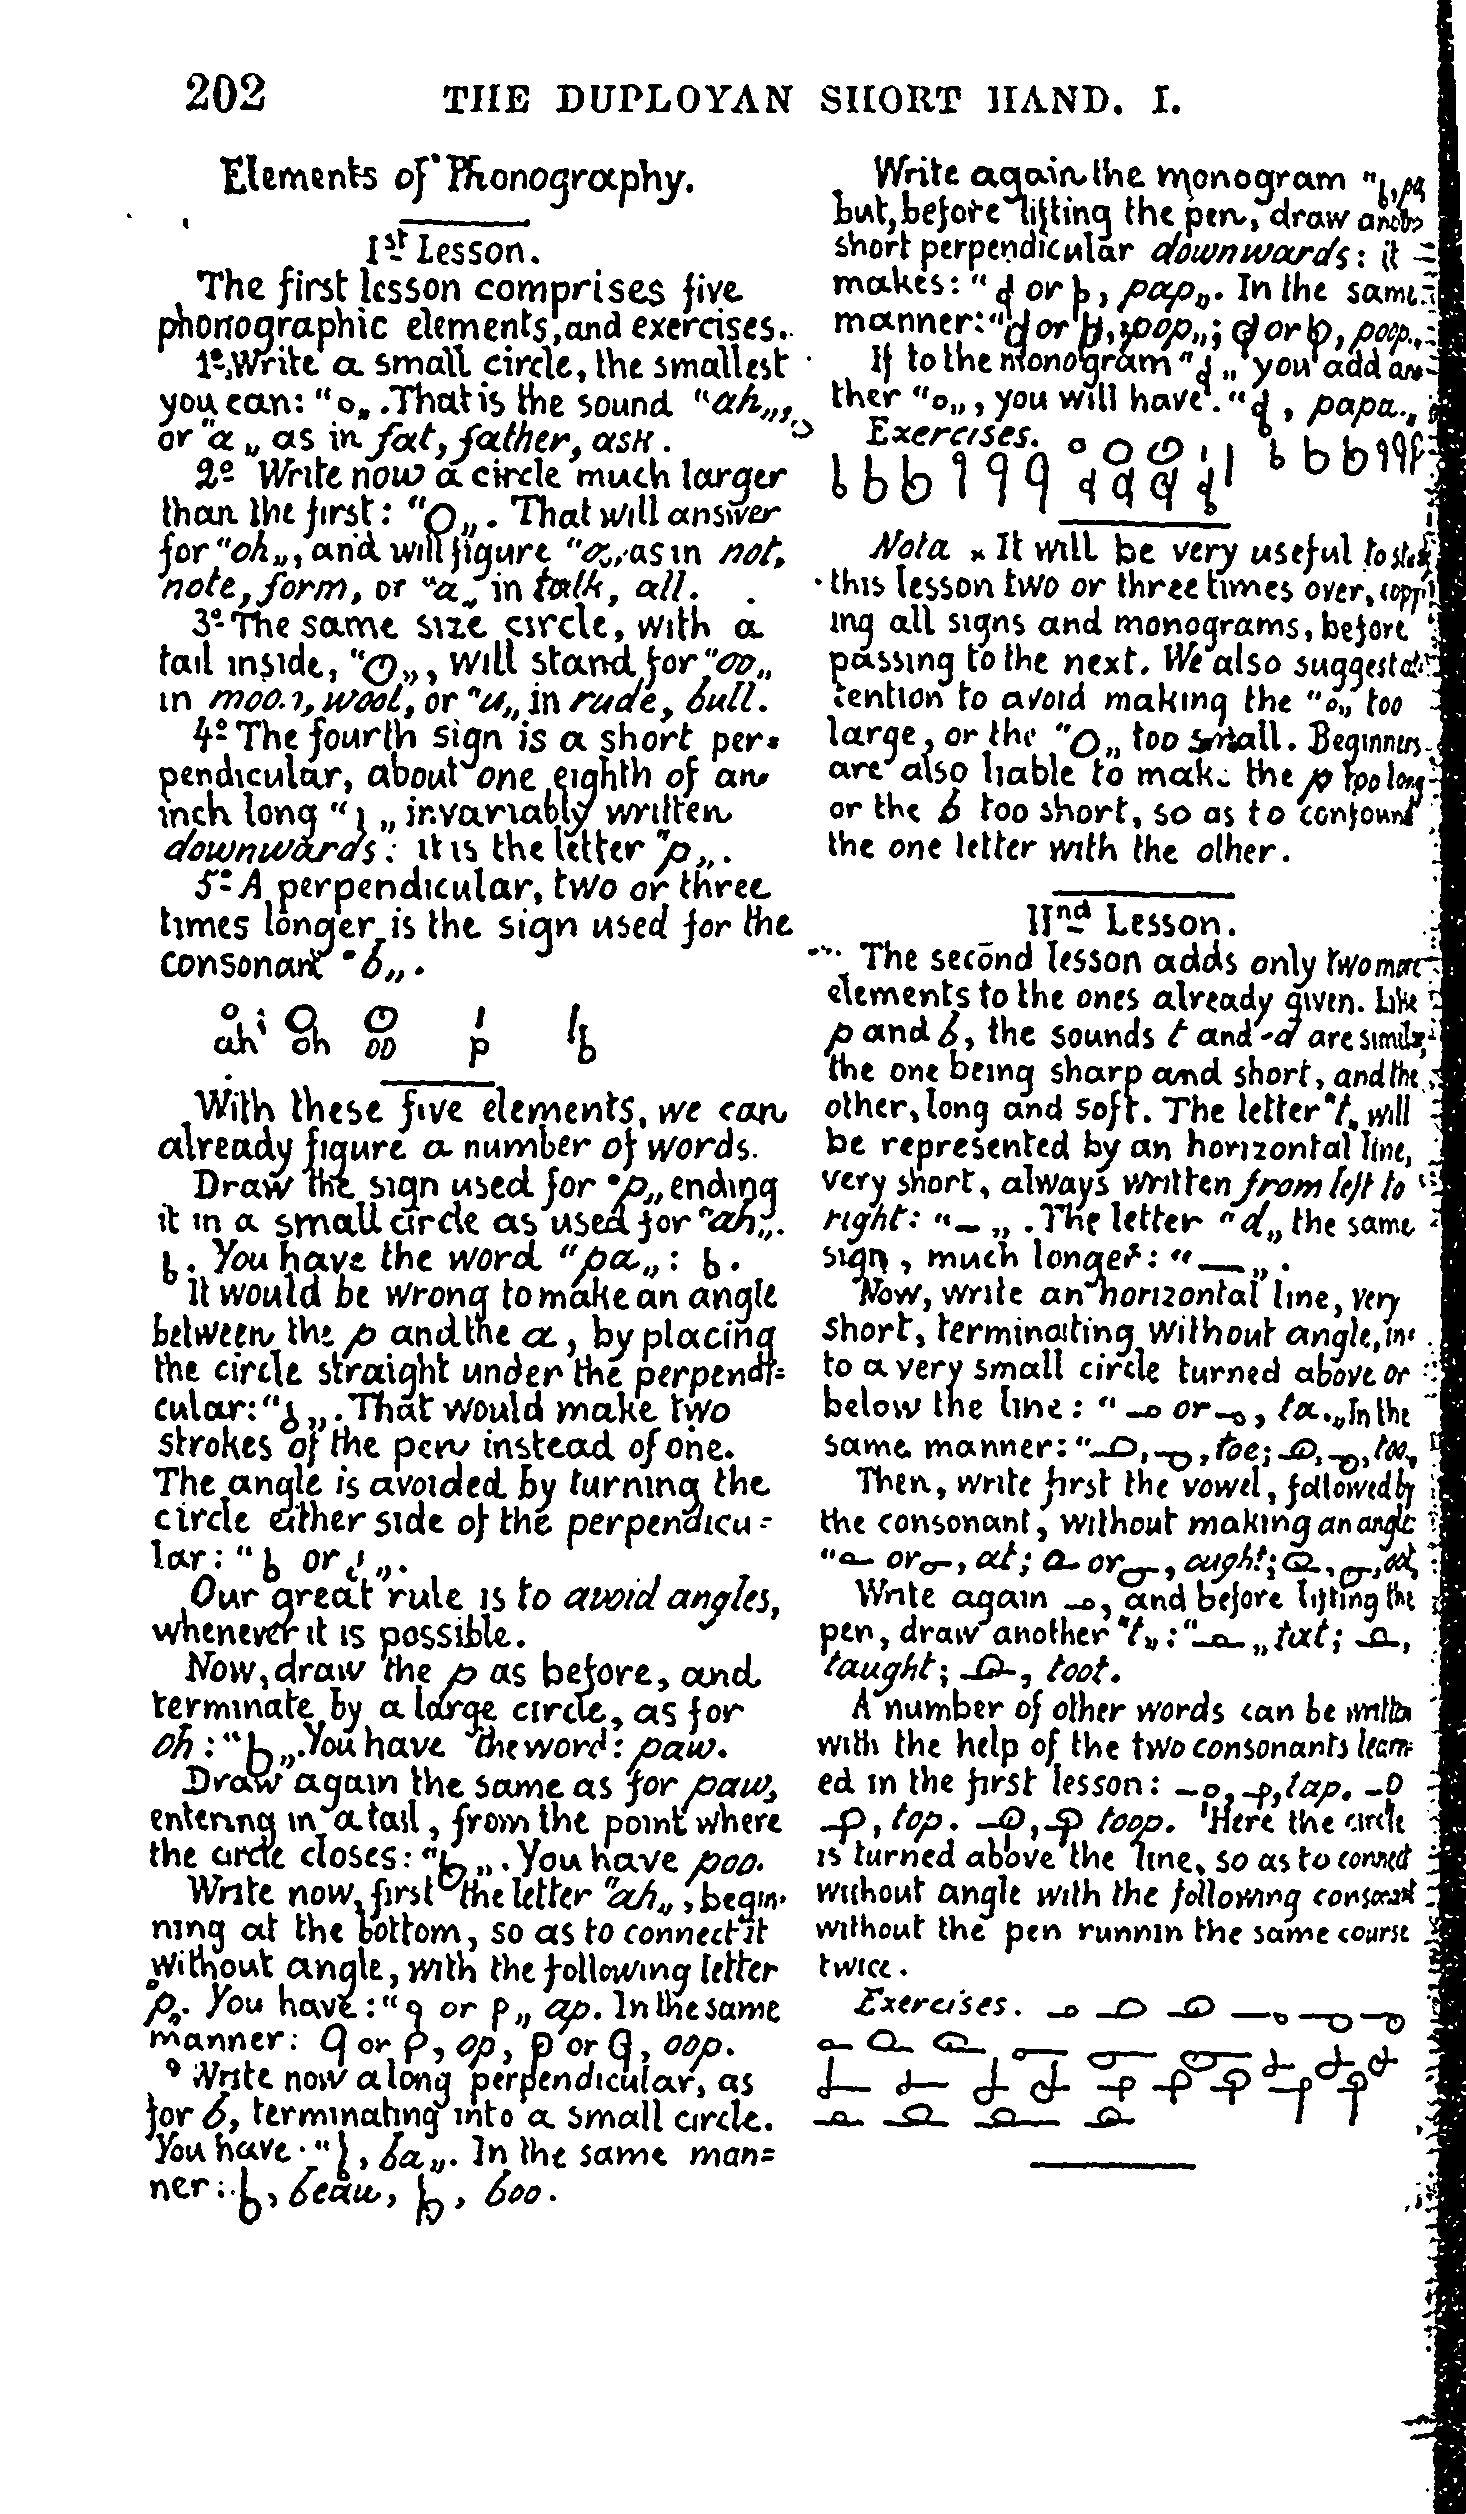 202 THE DUPLOYAN SHORT HAND. I.
Elements of Phonography.
Ist Lesson.
The first lesson comprises five
phonographic elements, and exercises.
1º. Write a small circle, the smallest
you can: "o„. That is the sound "ah„,
or "a„ as in fat, father, ask.
2º Write now a circle much larger
than the first: "O„. That will answer
for "oh„, and will figure "o„ as in not,
note, form, or "a„ in talk, all.
3º The same size circle, with a
tail inside, "ʘ„, will stand for "oo„
in moon, wool, or "u„ in rude, bull.
4º The fourth sign is a short per=
pendicular, about one eighth of an
inch long "ı„ invariably written
downwards: it is the letter "p„.
5º A perpendicular, two or three
times longer is the sign used for the
consonant "b„.
ah oh oo p b
With these five elements, we can
already figure a number of words.
Draw the sign used for "p„ ending
it in a small circle as used for "ah„.
. You have the word "pa„: .
It would be wrong to make an angle
between the p and the a, by placing
the circle straight under the perpendi=
cular: " „. That would make two
strokes of the pen instead of one.
The angle is avoided by turning the
circle either side of the perpendicu=
lar: " or „.
Our great rule is to avoid angles,
whenever it is possible.
Now, draw the p as before, and
terminate by a large circle, as for
oh: " „. You have the word: paw.
Draw again the same as for paw,
entering in a tail, from the point where
the circle closes: " „. You have poo.
Write now, first the letter "ah„, begin=
ning at the bottom, so as to connect it
without angle, with the following letter
"p„. You have: " or „ ap. In the same
manner: or , op, or , oop.
Write now a long perpendicular, as
for b, terminating into a small circle.
You have: " , ba„. In the same man=
ner: , beau, , boo.
Write again the monogram " , pa
but, before lifting the pen, draw
short perpendicular downwards: it
makes: " or , pap„. In the same
manner: " or , pop„; or , poop„
If to the monogram " „ you add ano=
ther "o„, you will have: " , papa„
Exercises.
Nota. It will be very useful to study
this lesson two or three times over, copy
ing all signs and monograms, before
passing to the next. We also suggest at=
tention to avoid making the "o„ too
large, or the "O„ too small. Beginners
are also liable to make the p too long
or the b too short, so as to confound
the one letter with the other.
IInd Lesson.
The second lesson adds only two more
elements to the ones already given. Like
p and b, the sounds t and d are similar,
the one being sharp and short, and the
other, long and soft. The letter "t„ will
be represented by an horizontal line,
very short, always written from left to
right: "–„. The letter "d„ the same
sign, much longer: "—„.
Now, write an horizontal line, very
short, terminating without angle, in=
to a very small circle turned above or
below the line: " or , ta„. In the
same manner: " , , toe; , , too„
Then, write first the vowel, followed by
the consonant, without making an angle
" or , at; or , aught; , , oot„
Write again , and before lifting the
pen, draw another "t„: " „ tat; ,
taught; , toot.
A number of other words can be written
with the help of the two consonants learn=
ed in the first lesson: , , tap.
, top. , toop. Here the circle
is turned above the line, so as to connect
without angle with the following consonant
without the pen runnin the same course
twice.
Exercises.